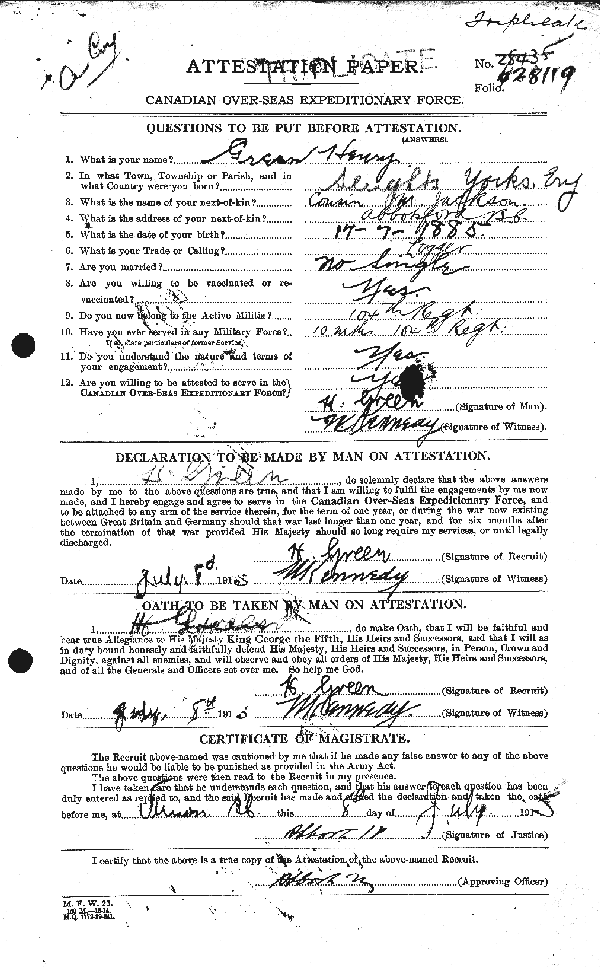 Triplicate
ATTESTATION PAPER.
No. 28435
428119
Folio.
CANADIAN OVER-SEAS EXPEDITIONARY FORCE.
QUESTIONS TO BE PUT BEFORE ATTESTATION.
(ANSWERS)
1. What is your name? Green Henry
2. In what Town, Township or Parish, and in
what Country were you born? Sleights Yorks Eng
3. What is the name of your next-of-kin? Cousin Jackson
4. What is the address of your next-of-kin? Abbotsford B.C.
5. What is the date of your birth? 17-7-1885
6. What is your Trade or Calling? Logger
7. Are you married? No Single
8. Are you willing to be vaccinated or re-
vaccinated? Yes.
9. Do you now belong to the Active Militia? 104th Regt.
10. Have you ever served in any Military Force? 10 mths 104th Regt.
If so, state particulars of former Service.
11. Do you understand the nature and terms of
your engagement? Yes.
12. Are you willing to be attested to serve in the
CANADIAN OVER-SEAS EXPEDITIONARY FORCE?
H. Green (Signature of Man).
M Kennedy (Signature of Witness).
DECLARATION TO BE MADE BY MAN ON ATTESTATION.
I, H. Green, do solemnly declare that the above answers
made by me to the above questions are true, and that I am willing to fulfil the engagements by me now
made, and I hereby engage and agree to serve in the Canadian Over-Seas Expeditionary Force, and
to be attached to any arm of the service therein, for the term of one year, or during the war now existing
between Great Britain and Germany should that war last longer than one year, and for six months after
the termination of that war provided His Majesty should so long require my services, or until legally
discharged.
H. Green (Signature of Recruit)
Date July 8th 1915 M Kennedy (Signature of Witness)
OATH TO BE TAKEN BY MAN ON ATTESTATION.
I, H Green, do make Oath, that I will be faithful and
bear true Allegiance to His Majesty King George the Fifth, His Heirs and Successors, and that I will as
in duty bound honestly and faithfully defend His Majesty, His Heirs and Successors, in Person, Crown and
Dignity, against all enemies, and will observe and obey all orders of His Majesty, His Heirs and Successors,
and of all the Generals and Officers set over me. So help me God.
H Green (Signature of Recruit)
Date July 8th 1915 M Kennedy. (Signature of Witness)
CERTIFICATE OF MAGISTRATE.
The Recruit above-named was cautioned by me that if he made any false answer to any of the above
questions he would be liable to be punished as provided in the Army Act.
The above questions were then read to the Recruit in my presence.
I have taken care that he understands each question, and that his answer to each question has been
duly entered as replied to, and the said Recruit has made and signed the declaration and taken the oath
before me, at Vernon BC this 8 day of July 1915
(Signature of Justice)
I certify that the above is a true copy of the Attestation of the above-named Recruit.
(Approving Officer)
M. F. W. 23.